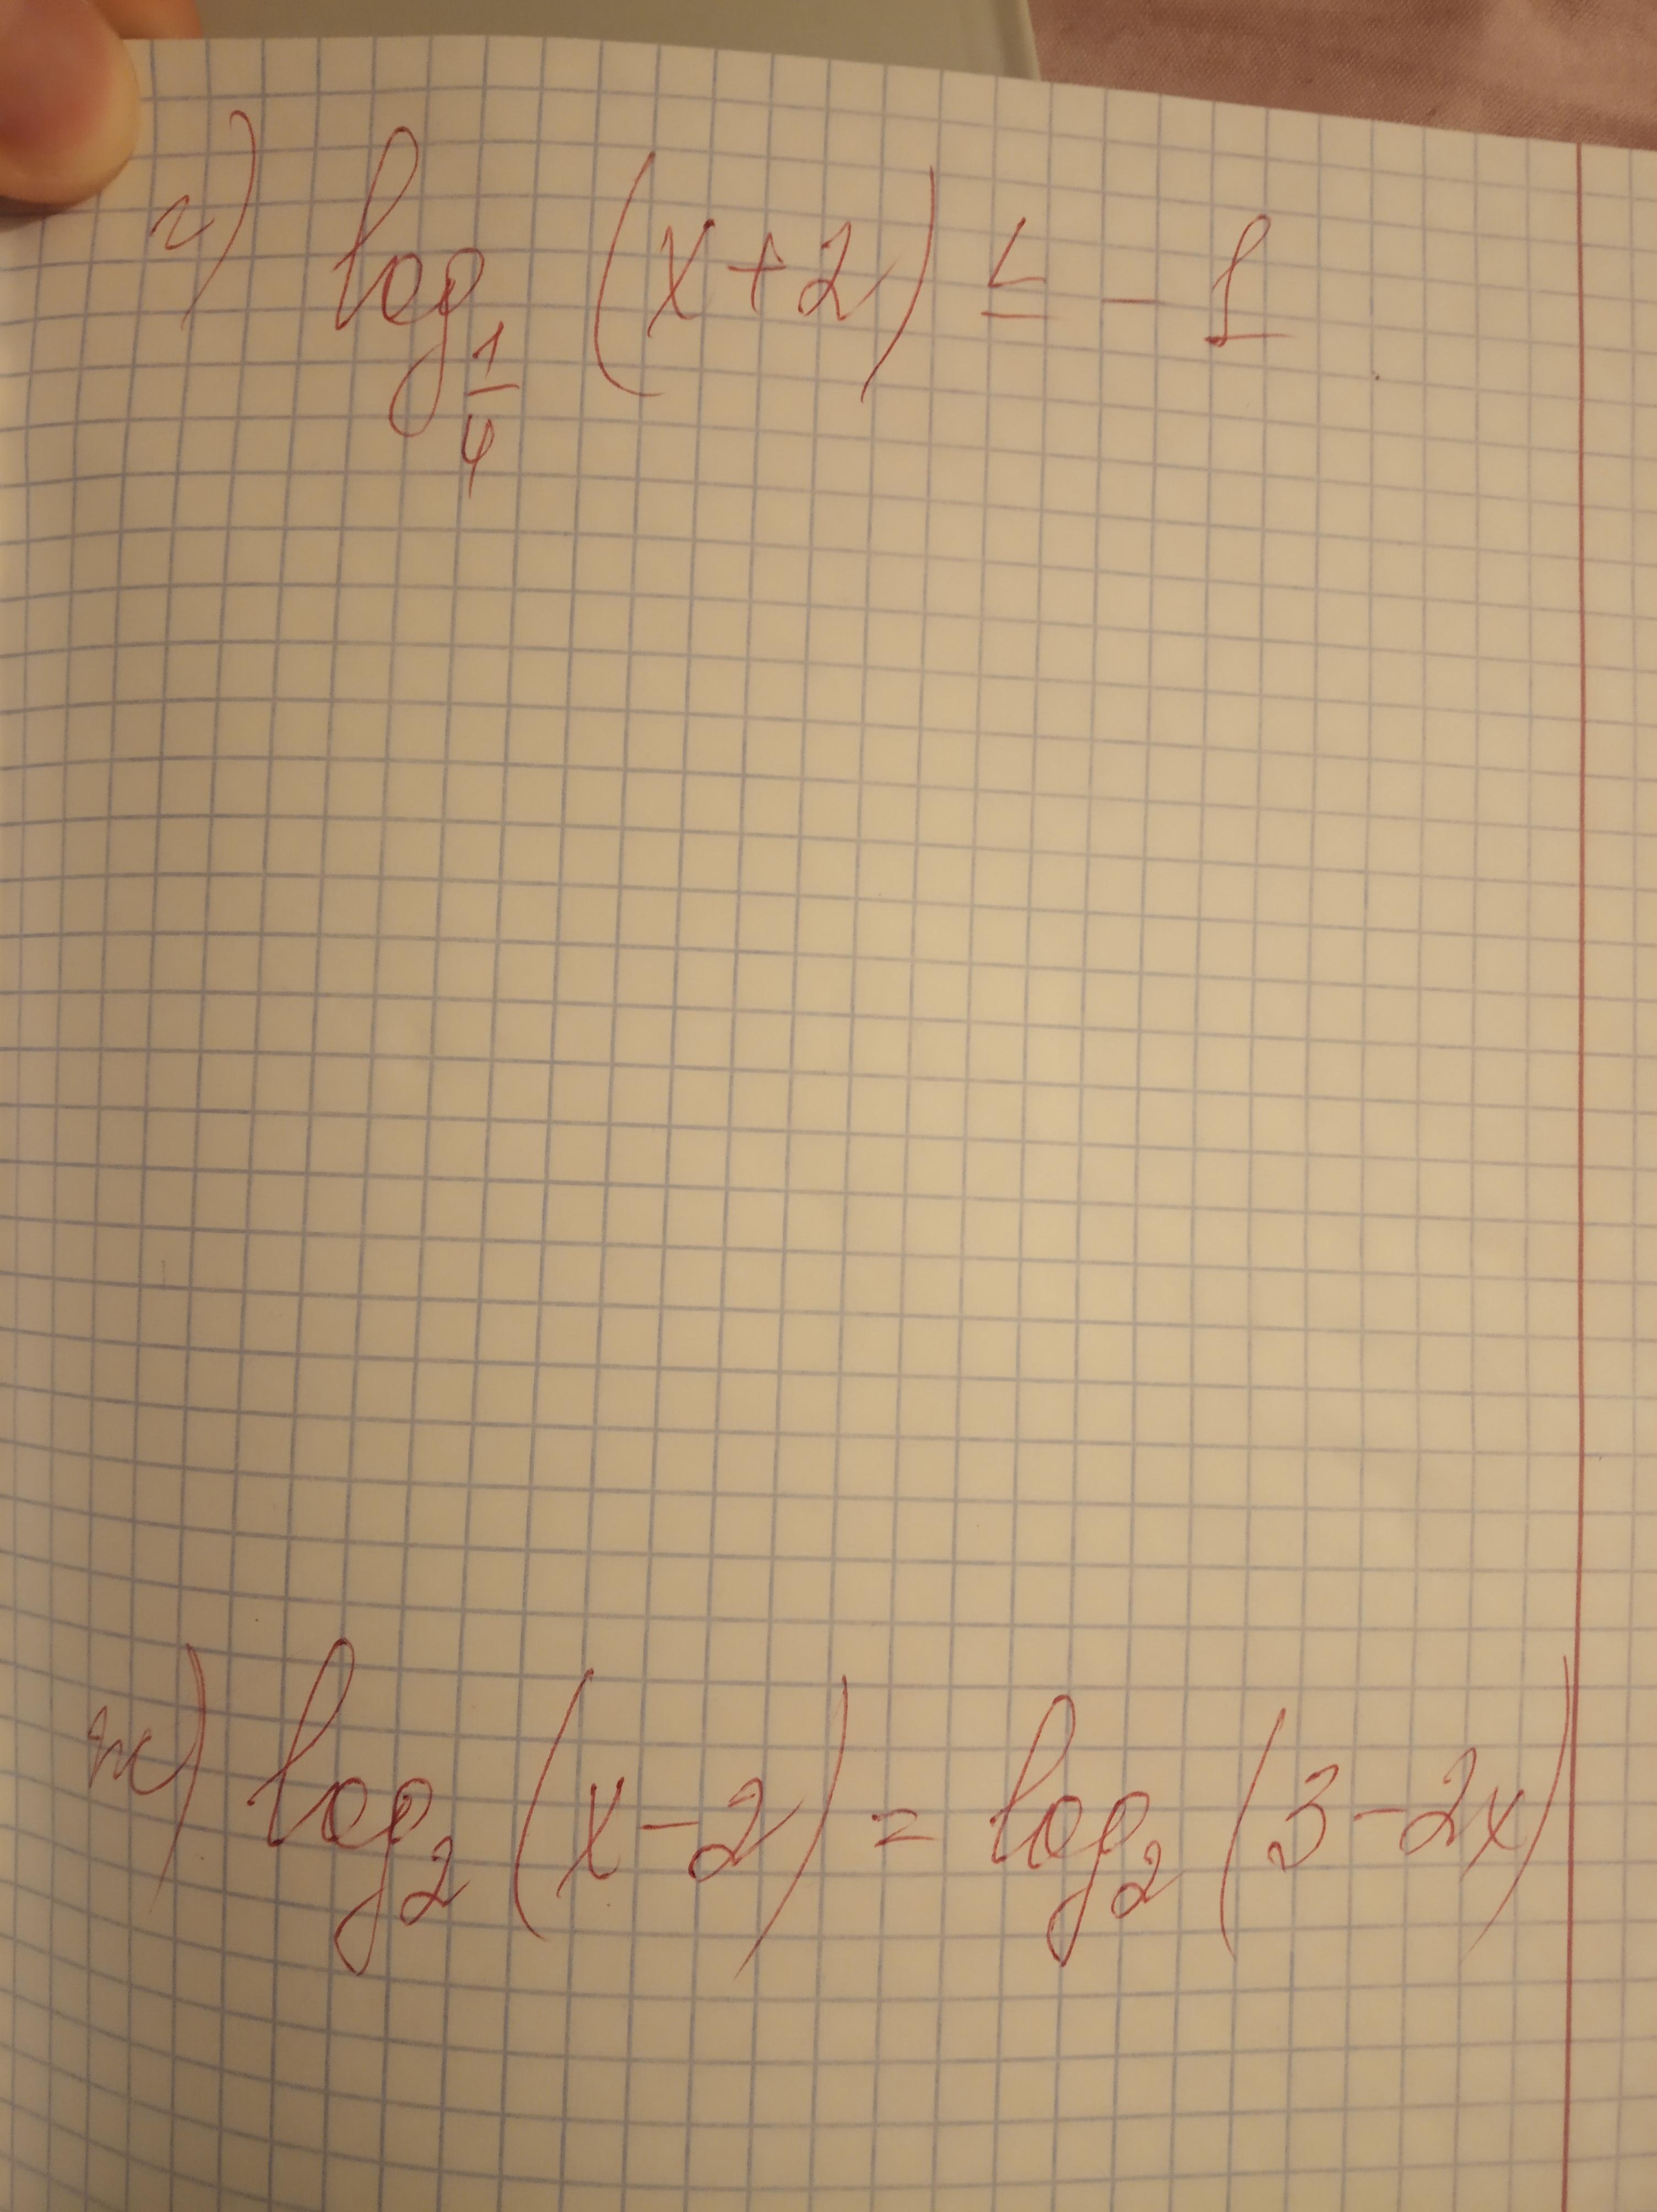 г) log_{1/4} (x+2) ≤ -1
ж) log_2 (x-2) = log_2 (3-2x)